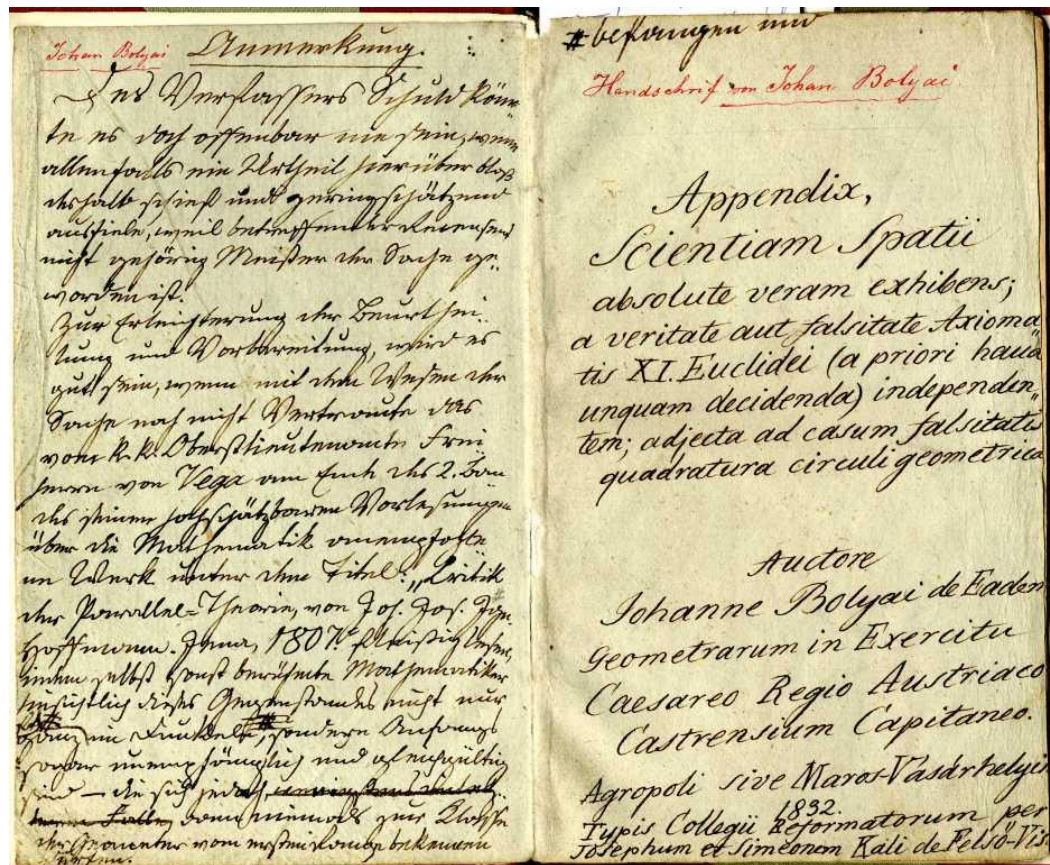 Johan Bolyai Anmerkung.
Des Verfassers Schuld könn
te es doch offenbar nie sein, wenn
allenfalls ein Urtheil hierüber bloß
deshalb schief und geringschätzend
ausfiele, weil betreffender Recensent
nicht gehörig Meister der Sache ge-
worden ist.
Zur Erleichterung der Beurthei-
lung und Vorbereitung, wird es
gut sein, wenn mit dem Wesen der
Sache noch nicht Vertraute das
vom k. k. Oberstlieutenante Frei
herrn von Vega am Ende des 2. Ban
des seiner hochschätzbaren Vorlesungen
über die Mathematik anempfohle
ne Werk unter dem Titel: „Kritik
der Parallel-Theorie, von Joh. Jos. Ign.
Hoffmann. Jena, 1807" fleissig lesen,
indem selbst sonst berühmte Mathematiker
hinsichtlich dieses Gegenstandes nicht nur
ganz im Dunkeln, # sondern Anfangs
sogar unempfänglich und gleichgültig
sind — die sich jedoch
dann niemals zur Klasse
der Geometer vom ersten Range bekennen
dürfen.
# befangen und
Handschrif von Johan Bolyai
Appendix,
Scientiam Spatii
absolute veram exhibens;
a veritate aut falsitate Axioma
tis XI. Euclidei (a priori haud
unquam decidenda) independen„
tem; adjecta ad casum falsitatis
quadratura circuli geometrica
Auctore
Johanne Bolyai de Eadem
Geometrarum in Exercitu
Caesareo Regio Austriaco
Castrensium Capitaneo.
Agropoli sive Maros-Vásárhelyii
1832.
Typis Collegii Reformatorum per
Josephum et Simeonem Kali de Felsö-Vis